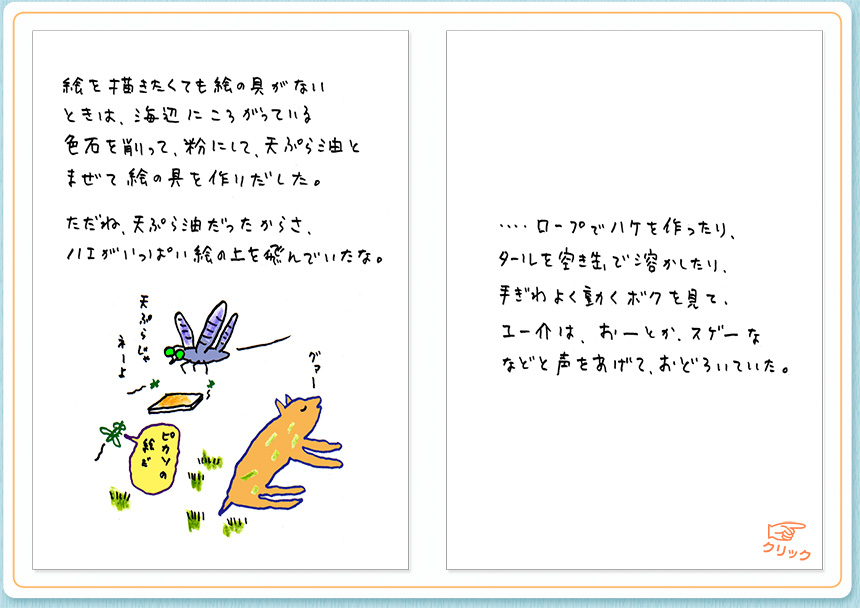 絵を描きたくても絵の具がない
ときは、海辺にころがっている
色石を削って、粉にして、天ぷら油と
まぜて絵の具を作りだした。
ただね、天ぷら油だったからさ、
ハエがいっぱい絵の上を飛んでいたな。
天ぷらじゃ
ネーよ
グァー
ピカソの
絵だ
‥‥ロープでハケを作ったり、
タールを空き缶で溶かしたり、
手ぎわよく動くボクを見て、
ユー介は、おーとか、スゲーな
などと声をあげて、おどろいていた。
クリック